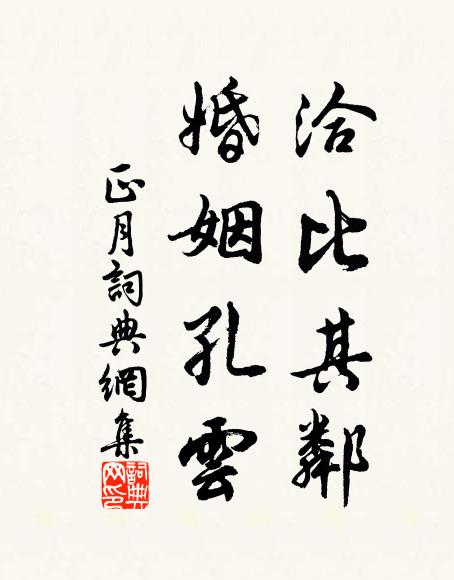 洽比其鄰
婚姻孔雲
正月詞典網集
詞典網印